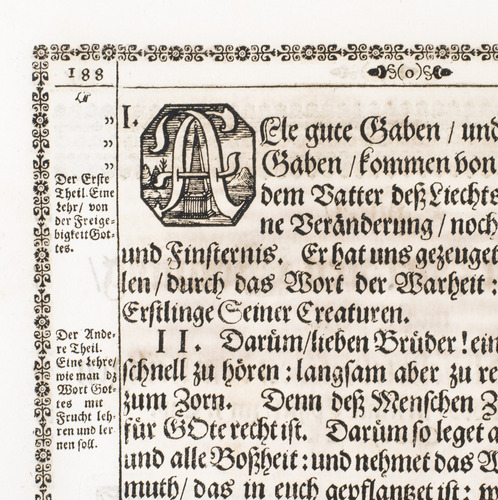 188
(o)
Der Erste
Theil. Eine
Lehr/ von
der Freige-
bigkeit Got-
tes.
Der Ande-
re Theil.
Eine Lehre/
wie man dz
Wort Got-
tes mit
Frucht leh-
ren und ler
nen soll.
I. Alle gute Gaben / und
Gaben / kommen von
dem Vatter deß Liechts
ne Veränderung / noch
und Finsternis. Er hat uns gezeuget
len / durch das Wort der Warheit :
Erstlinge Seiner Creaturen.
II. Darüm/lieben Brüder ! ein
schnell zu hören : langsam aber zu re
zum Zorn. Denn deß Menschen Z
für GOte recht ist. Darüm so leget a
und alle Boßheit : und nehmet das W
muth/ das in euch gepflantzet ist : w